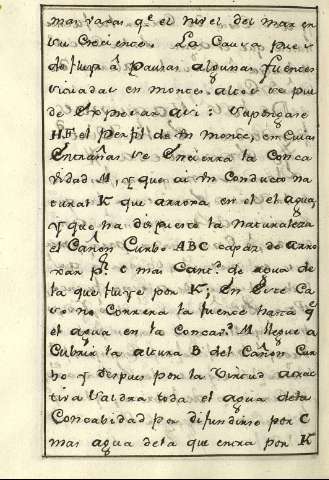 mas vajas q.e el nivel del mar en
su Creciente. La Causa pues
de fluyr â Pausas algunas fuentes
situadas en montes altos se pue
de Expresar asi: Supongase
HF el Perfil de Vn monte, en Cuias
Entrañas se Encierra la Conca
vidad M, y que ai Vn Conducto na
tural K que arroxa en el el agua,
y que ha dispuesto la Naturaleza
el Cañon Curbo ABC capaz de arro
xar p.r C mas Cant.d de agua de
la que fluye por K; En Este Ca
so no Correra la fuente hasta q.e
el agua en la Concav.d M llegue a
Cubrir la altura B del Cañon Cur
bo y despues por la Virtud atrac
tiva Saldra toda el agua dela
Concabidad por difundirse por C
mas agua dela que entra por K